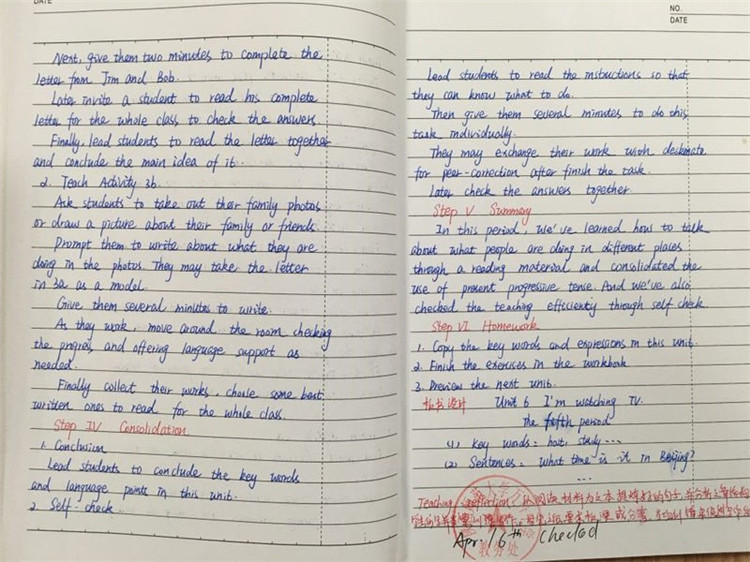 DATE
Next, give them two minutes to complete the
letter from Jim and Bob.
Later invite a student to read his complete
letter for the whole class to check the answers
Finally, lead students to read the letter together
and conclude the main idea of it.
2. Teach Activity 3b.
Ask students to take out their family photos
or draw a picture about their family or friends.
Prompt them to write about what they are
doing in the photos. They may take the letter
in 3a as a model.
Give them several minutes to write.
As they work, move around the room checking
the progres, and offering language support as
needed.
Finally collect their works, choose some best
written ones to read for the whole class.
Step IV Consolidation
1. Conclusion
Lead students to conclude the key words
and language points in this unit.
2. Self-check
NO.
DATE
Lead students to read the instuctions so that
they can know what to do.
Then give them several minutes to do this
task individually.
They may exchange their work with deskmate
for peer-correction after finish the task.
Later check the answers together.
Step V Summary
In this period, we've learned how to talk
about what people are doing in different places
through a reading material and consolidated the
use of present progressive tense. And we've also
checked the teaching efficiently through self check.
Step VI Homework
1. Copy the key words and expressions in this unit.
2. Finish the exercises in the workbook
3. Preview the next unit.
板书设计 Unit 6 I'm watching TV.
the fifth period
(1) Key words: host, study...
(2) Sentences: what time is it in Beijing?
...
Teaching reflection
教务处
Apr. 16th checked